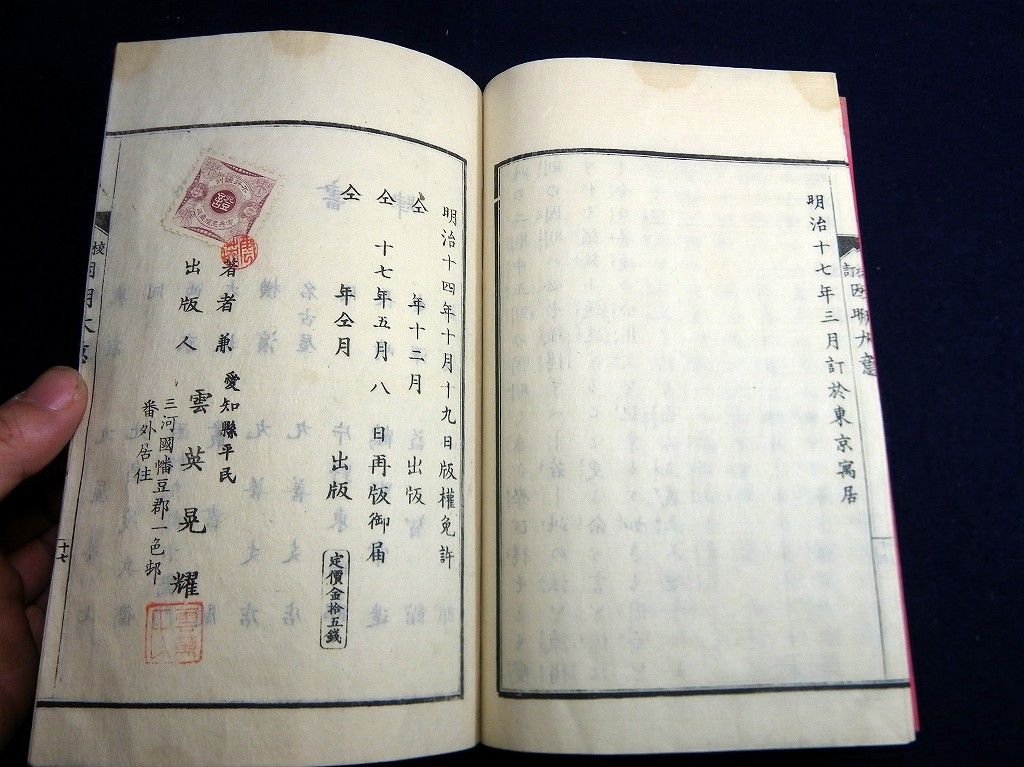 明治十七年三月訂於東京寓居
明治十四年十月十九日版權免許
仝 年十二月 出版
仝 十七年五月八日再版御届
仝 年仝月 出版
定價金拾五錢
著者兼
出版人
愛知縣平民
雲英晃耀
三河國幡豆郡一色邨
番外居住
十七